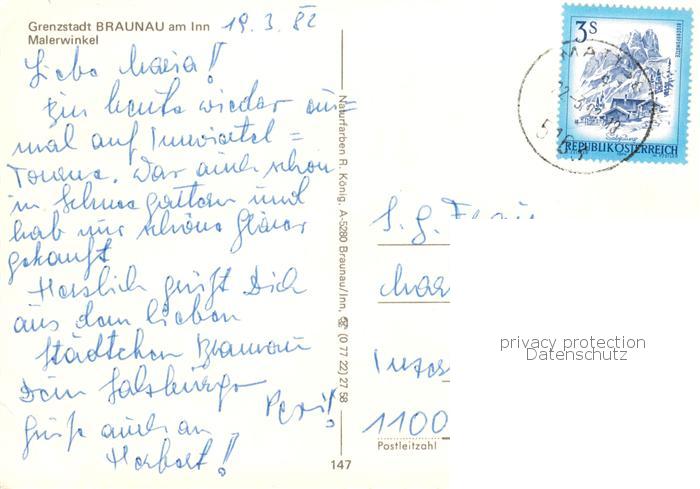 Grenzstadt BRAUNAU am Inn
Malerwinkel
19.3.82
Liebe Maria!
Bin heute wieder ein=
mal auf Innviertel=
Tour. War auch schon
in Schneegattern und
hab mir schöne Gläser
gekauft
Herzlich grüßt Dich
aus dem lieben
Städtchen Braunau
Dein Salzburger
Pepi!
Grüße auch an
Herbert!
Naturfarben R. König, A-5280 Braunau/Inn, ☎ (0 77 22) 27 58
147
3 S
REPUBLIK ÖSTERREICH
S. g. Frau
Mar
Inzer
1100
Postleitzahl
privacy protection
Datenschutz